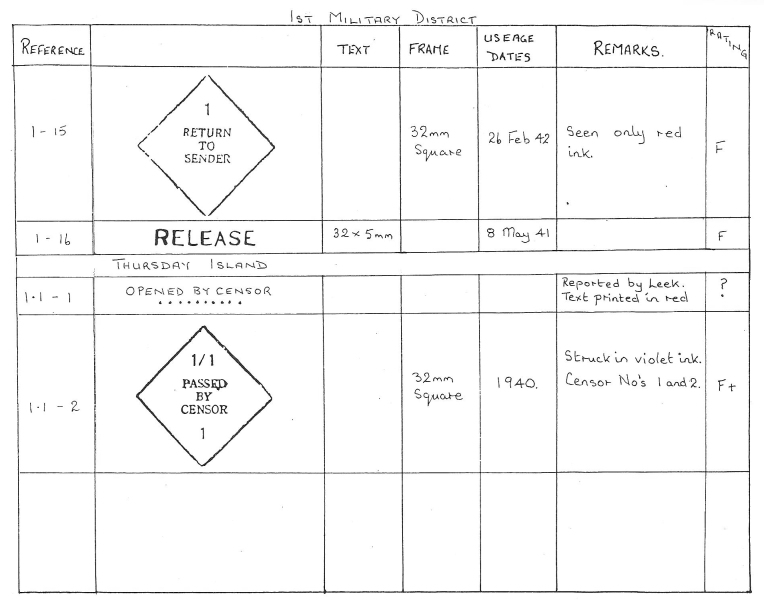 1ST MILITARY DISTRICT
REFERENCE TEXT FRAME USEAGE DATES REMARKS. RATING
1-15
1
RETURN
TO
SENDER
32mm
Square
26 Feb 42
Seen only red
ink.
F
1-16 RELEASE 32 x 5mm 8 May 41 F
THURSDAY ISLAND
1·1-1
OPENED BY CENSOR
..........
Reported by Leek.
Text printed in red
?
1·1-2
1/1
PASSED
BY
CENSOR
1
32mm
Square
1940.
Struck in violet ink.
Censor No's 1 and 2.
F+